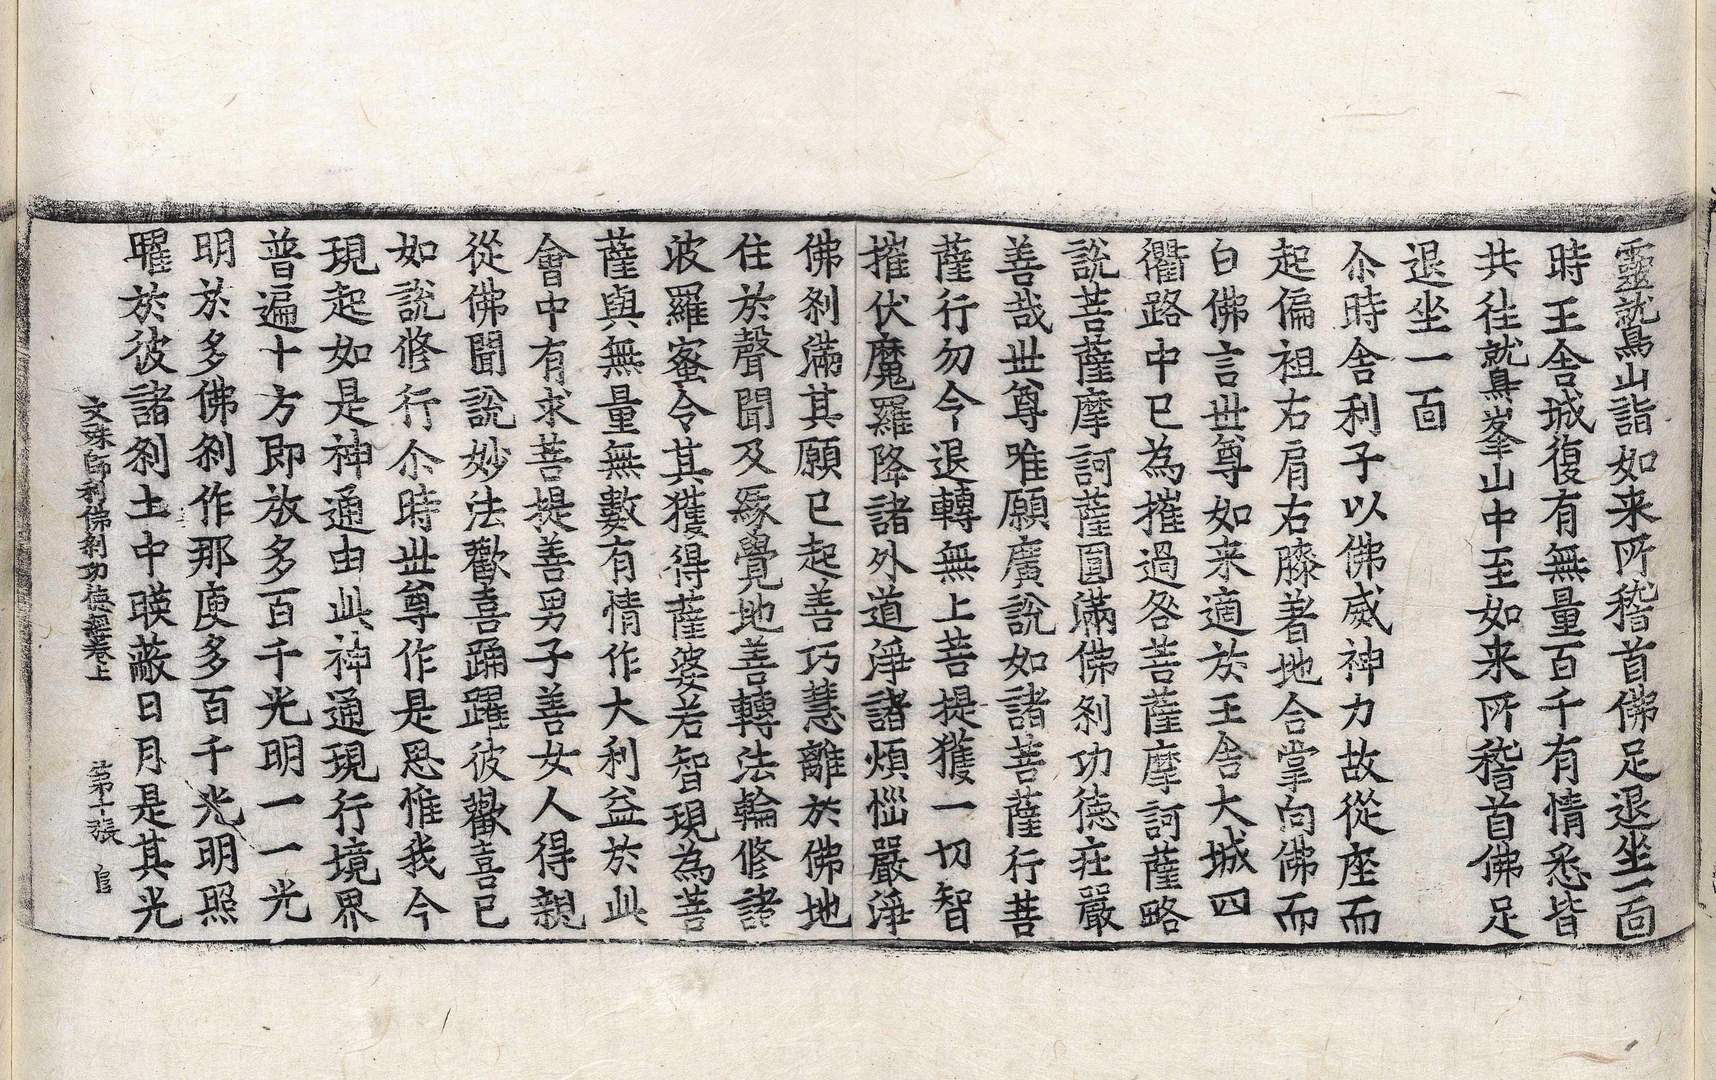 靈鷲山詣如来所稽首佛足退坐一面
時王舍城復有無量百千有情悉皆
共往鷲峯山中至如来所稽首佛足
退坐一面
尒時舍利子以佛威神力故從座而
起偏袒右肩右膝著地合掌向佛而
白佛言世尊如来適於王舍大城四
衢路中已為摧過咎菩薩摩訶薩略
說菩薩摩訶薩圓滿佛刹功德莊嚴
善哉世尊唯願廣說如諸菩薩行菩
薩行勿令退轉無上菩提獲一切智
摧伏魔羅降諸外道淨諸煩惱嚴淨
佛刹滿其願已起善巧慧離於佛地
住於聲聞及緣覺地善轉法輪修諸
波羅蜜令其獲得薩婆若智現為菩
薩與無量無數有情作大利益於此
會中有求菩提善男子善女人得親
從佛聞說妙法歡喜踊躍彼歡喜已
如說修行尒時世尊作是思惟我今
現起如是神通由此神通現行境界
普遍十方即放多百千光明一一光
明於多佛刹作那庾多百千光明照
曜於彼諸刹土中暎蔽日月是其光
文殊師利佛刹功德經卷上 第十張 官